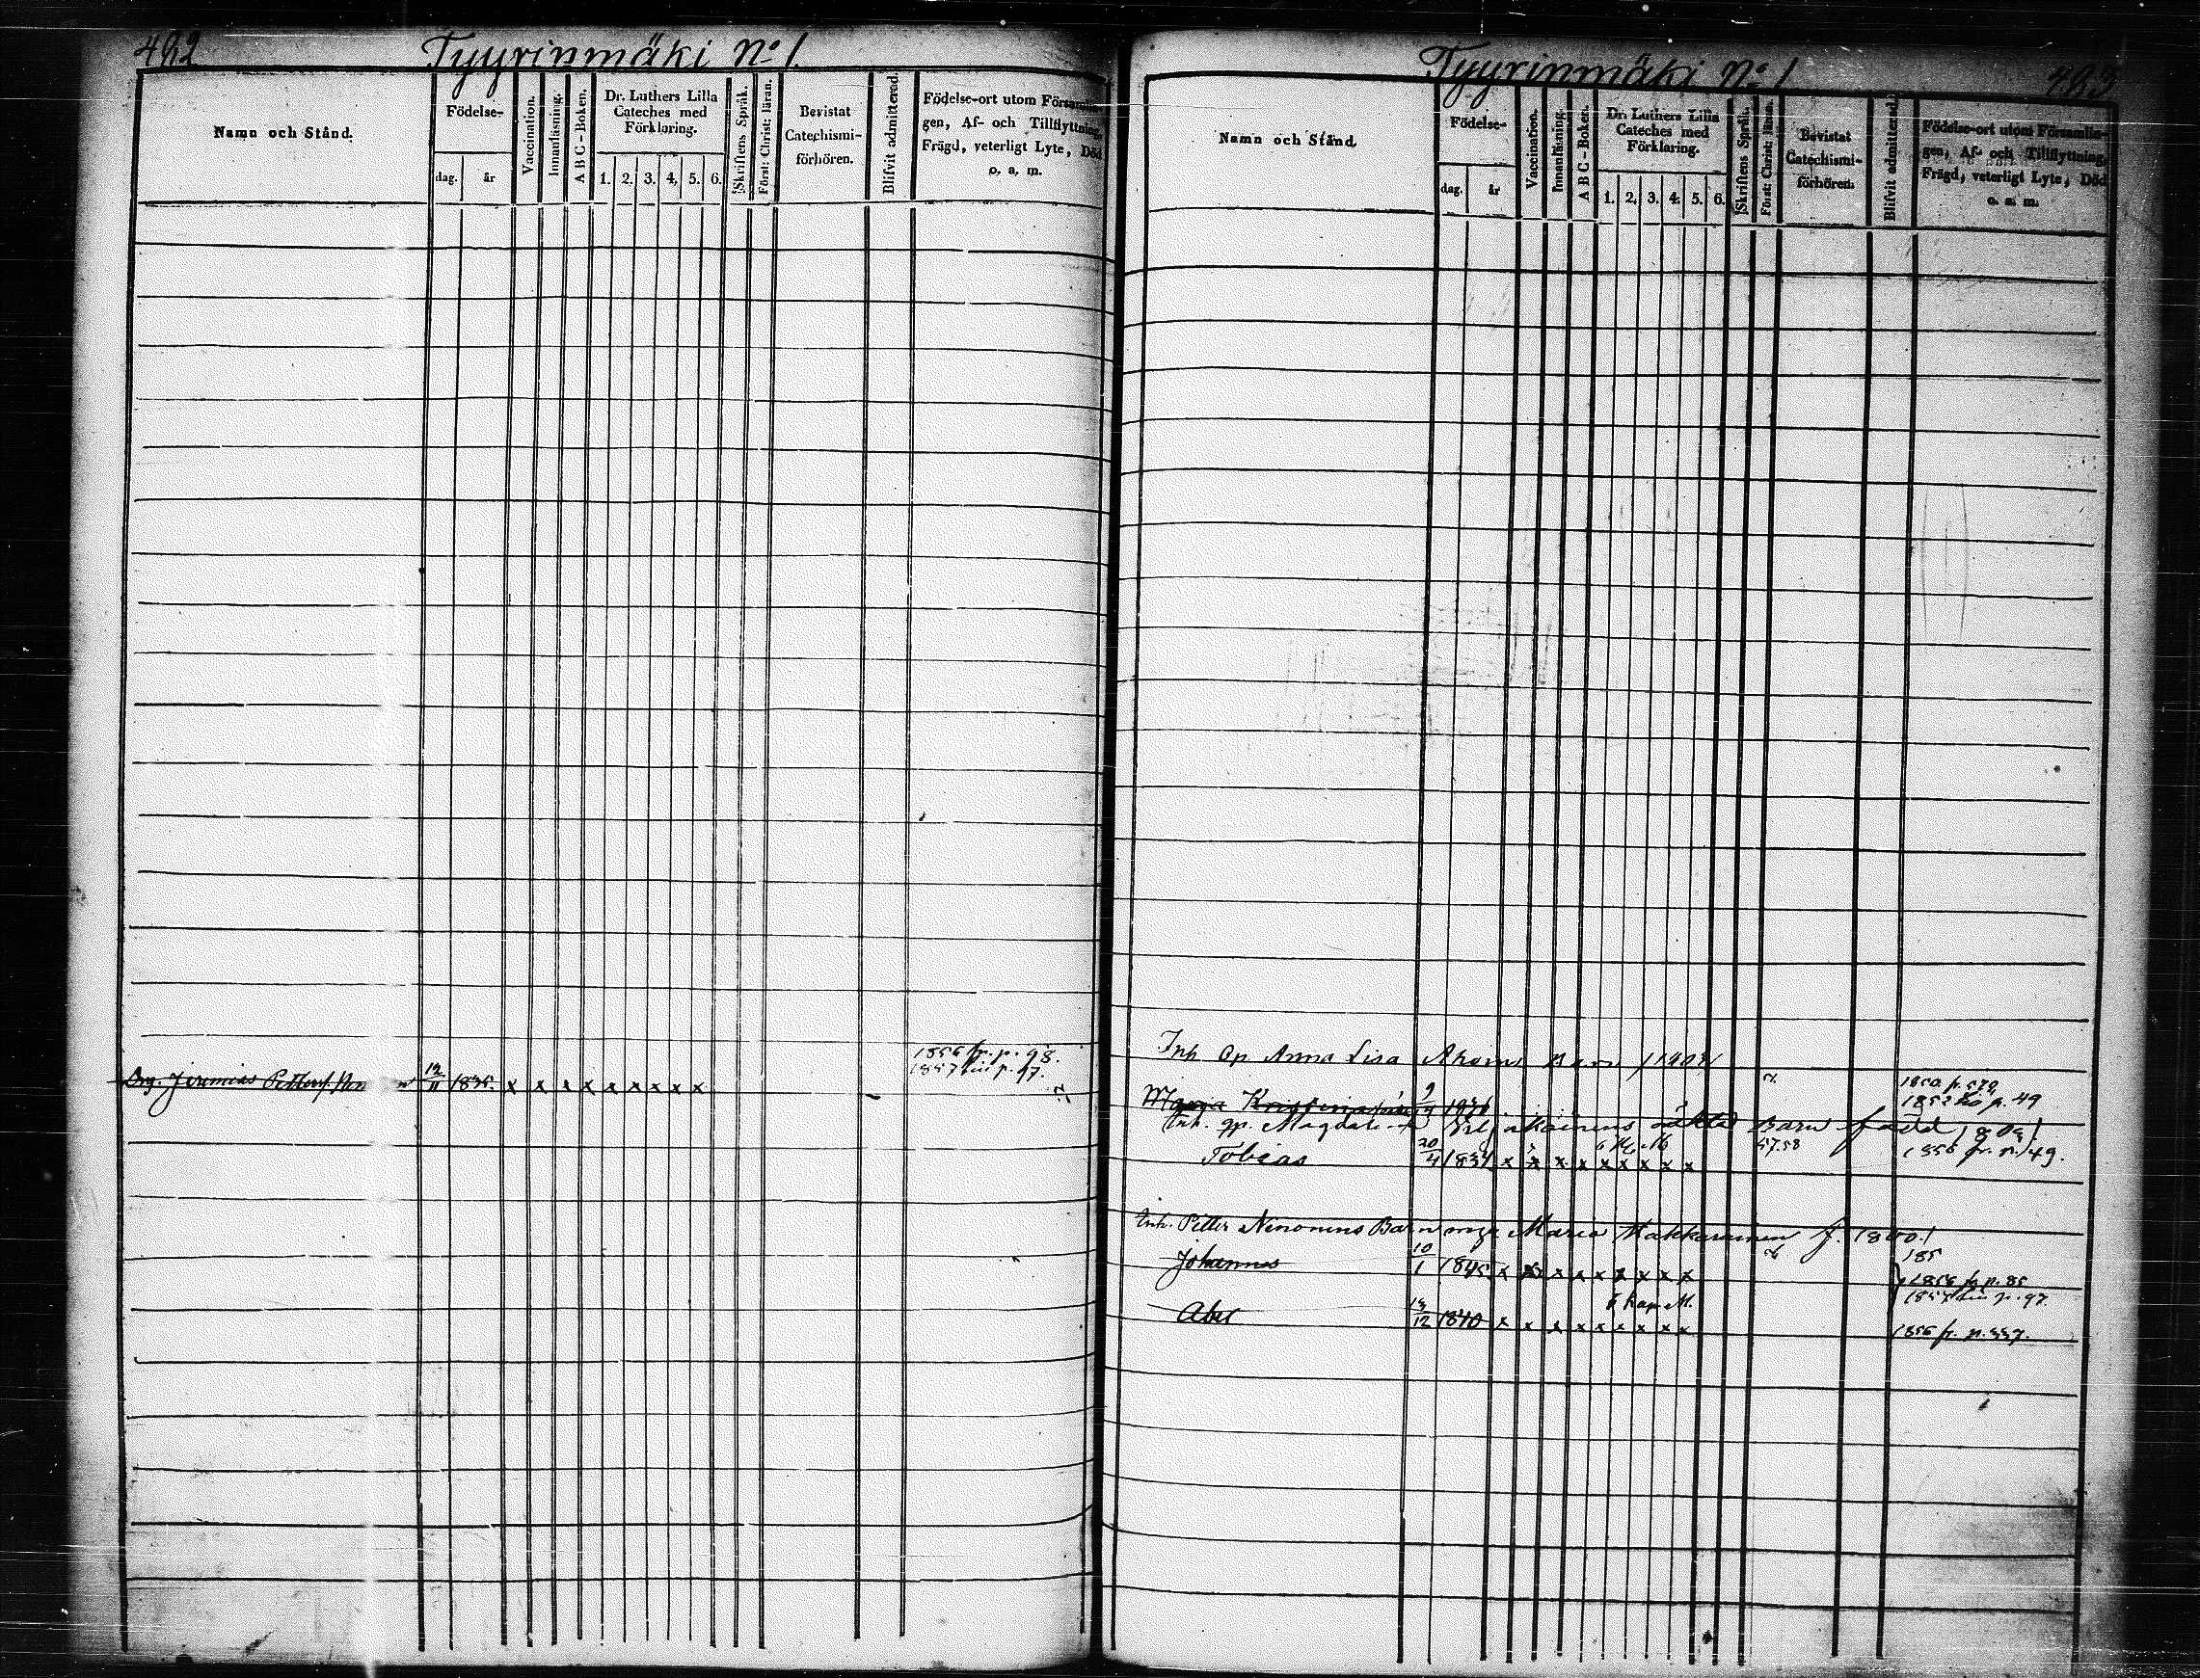 492 Tyyrinmäki No 1.
Namn och Stånd.
Födelse-
dag. år
Vaccination.
Innanläsning.
A B C - Boken.
Dr. Luthers Lilla
Cateches med
Förklaring.
1. 2. 3. 4. 5. 6.
Skriftens Språk.
Först: Christ: läran.
Bevistat
Catechismi-
förhören.
Blifvit admitterad.
Födelse-ort utom Församlin-
gen, Af- och Tillflyttning,
Frägd, veterligt Lyte, Död
o. a. m.
1856 fr. p. 98.
Jeremias 12/11 1835. x x x x x x x x x
Tyyrinmäki No 1 493
Namn och Stånd.
Födelse-
dag. år
Vaccination.
Innanläsning.
A B C - Boken.
Dr. Luthers Lilla
Cateches med
Förklaring.
1. 2. 3. 4. 5. 6.
Skriftens Språk.
Först: Christ: läran.
Bevistat
Catechismi-
förhören.
Blifvit admitterad.
Födelse-ort utom Församlin-
gen, Af- och Tillflyttning,
Frägd, veterligt Lyte, Död
o. a. m.
Inh. Anna Lisa
Maria
Inh. Barn född
57.58
Tobias 20/4 x x x x x x x x x 1856 fr. p. 149.
Inh. Petter Nenonens Barn Maria Makkarainen f. 1800!
185
Johannes 10/1 1845. x x x x x x x x 1856 fr p. 85
p. 97.
Abel 12 1840 x x x x x x x x x
1856 fr. p. 337.